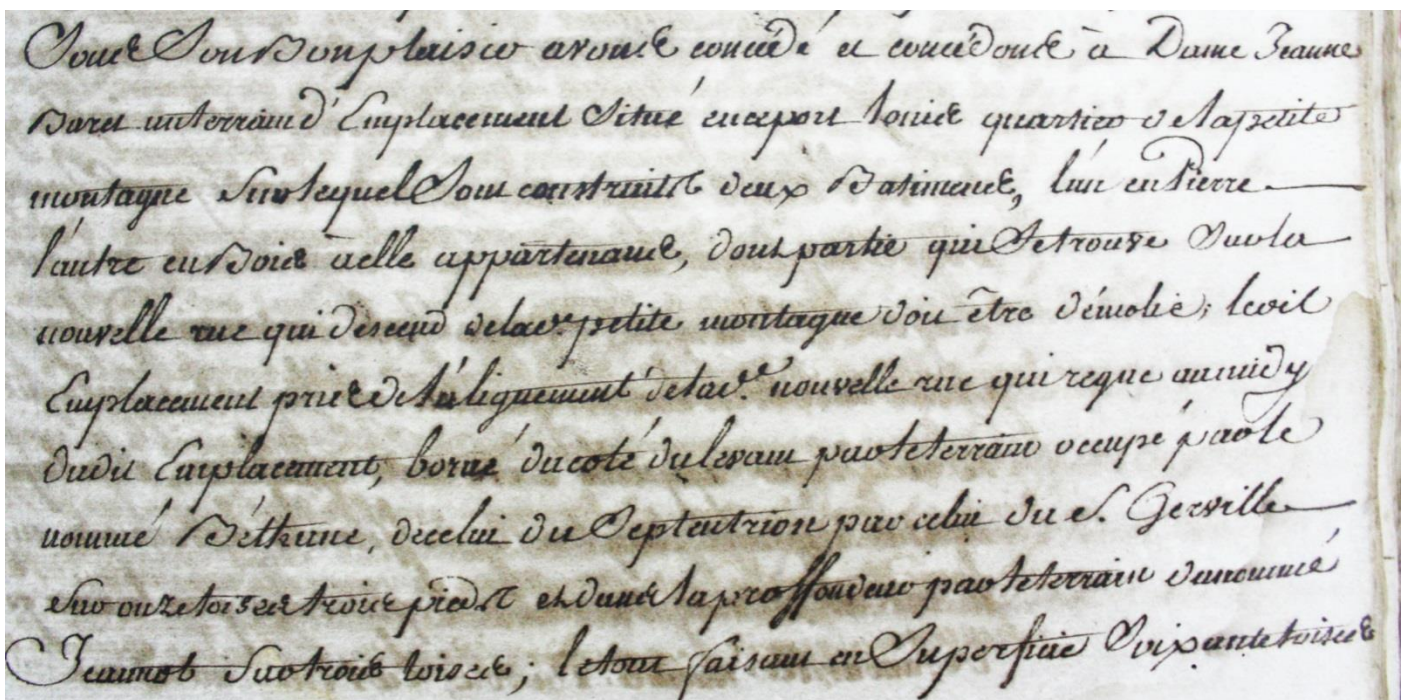 Sous Son Bon plaisir avons concédé et concédons à Dame Jeanne
Baret un terrain d'Emplacement Situé en ce port louis quartier de la petite
montagne Sur lequel Sont construits deux Batimens, l'un en Pierre
l'autre en Bois à elle appartenans, dont partie qui Se trouve Sur la
nouvelle rue qui descend de lad.e petite montagne doit être démolie; ledit
Emplacement pris de l'alignement de lad.e nouvelle rue qui regne au midy
dudit Emplacement, borné du coté du levant par le terrain occupé par le
nommé Béthune, de celui du Septentrion par celui du S. Gerville
sur onze toises trois pieds et dans la proffondeur par le terrain du nommé
Jeannot Sur trois toises; le tout faisant en Superficie Soixante toises